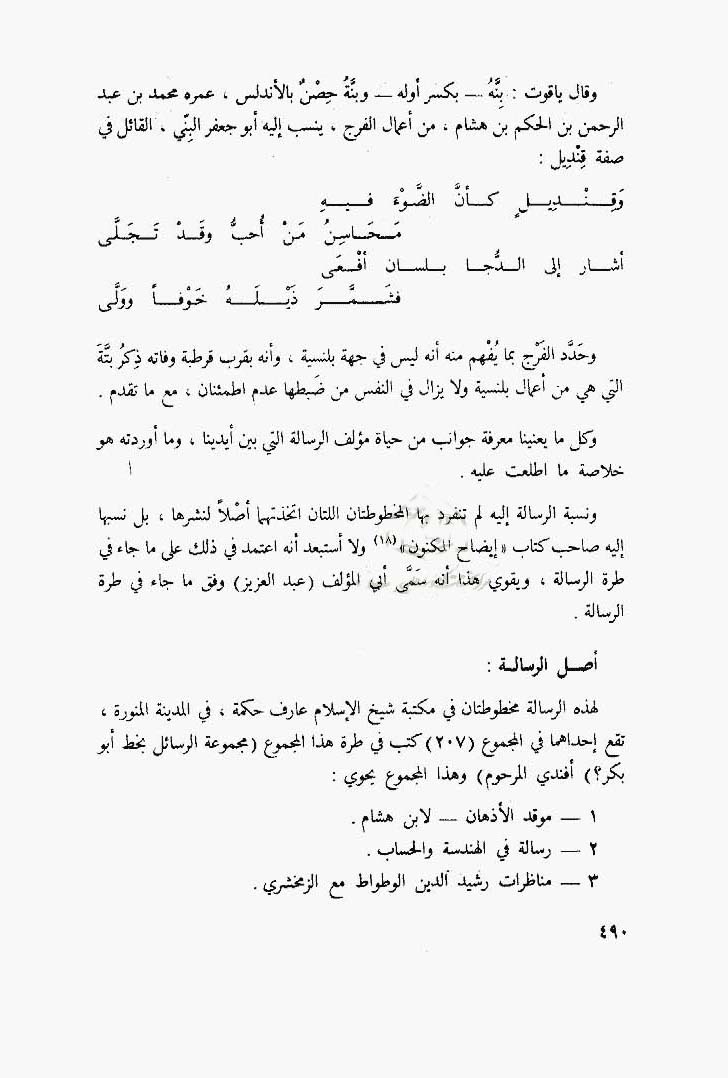 وقال ياقوت : بِنَّهُ — بكسر أوله — وبنَّةُ حِصْنٌ بالأندلس ، عمره محمد بن عبد
الرحمن بن الحكم بن هشام ، من أعمال الفرج ، ينسب إليه أبو جعفر البِنّي ، القائل في
صفة قِنْديل :
وَقِـنْـديـلٍ كـأنَّ الضَّوْءَ فـيـهِ
مَـحَـاسِنُ مَـنْ أُحبُّ وقَـدْ تَـجَـلَّى
أشـار إلى الـدُّجـا بـلسـان أفْـعَى
فشَـمَّـرَ ذَيْـلَـهُ خَـوْفـاً ووَلَّى
وحَدَّد الفَرْج بما يُفْهم منه أنه ليس في جهة بلنسية ، وأنه بقرب قرطبة وفاته ذِكرُ بنَّةَ
التي هي من أعمال بلنسية ولا يزال في النفس من ضَبطها عدم اطمئنان ، مع ما تقدم .
وكل ما يعنينا معرفة جوانب من حياة مؤلف الرسالة التي بين أيدينا ، وما أوردته هو
خلاصة ما اطلعت عليه .
ونسبة الرسالة إليه لم تنفرد بها المخطوطتان اللتان اتخذتهما أصْلاً لنشرها ، بل نسبها
إليه صاحب كتاب «إيضاح المكنون»(١٨) ولا أستبعد أنه اعتمد في ذلك على ما جاء في
طرة الرسالة ، ويقوي هذا أنه سَمَّى أبي المؤلف (عبد العزيز) وفق ما جاء في طرة
الرسالة .
أصـل الرسالـة :
لهذه الرسالة مخطوطتان في مكتبة شيخ الإسلام عارف حكمة ، في المدينة المنورة ،
تقع إحداهما في المجموع (٢٠٧) كتب في طرة هذا المجموع (مجموعة الرسائل بخط أبو
بكر؟) أفندي المرحوم) وهذا المجموع يحوي :
١ — موقد الأذهان — لابن هشام .
٢ — رسالة في الهندسة والحساب .
٣ — مناظرات رشيد الدين الوطواط مع الزمخشري .
٤٩٠